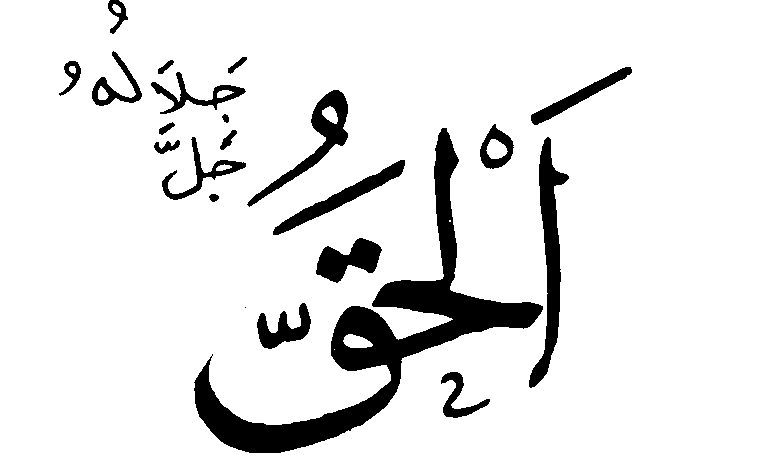 اَلْحَقُّ
جَلَّ جَلَالُهُ